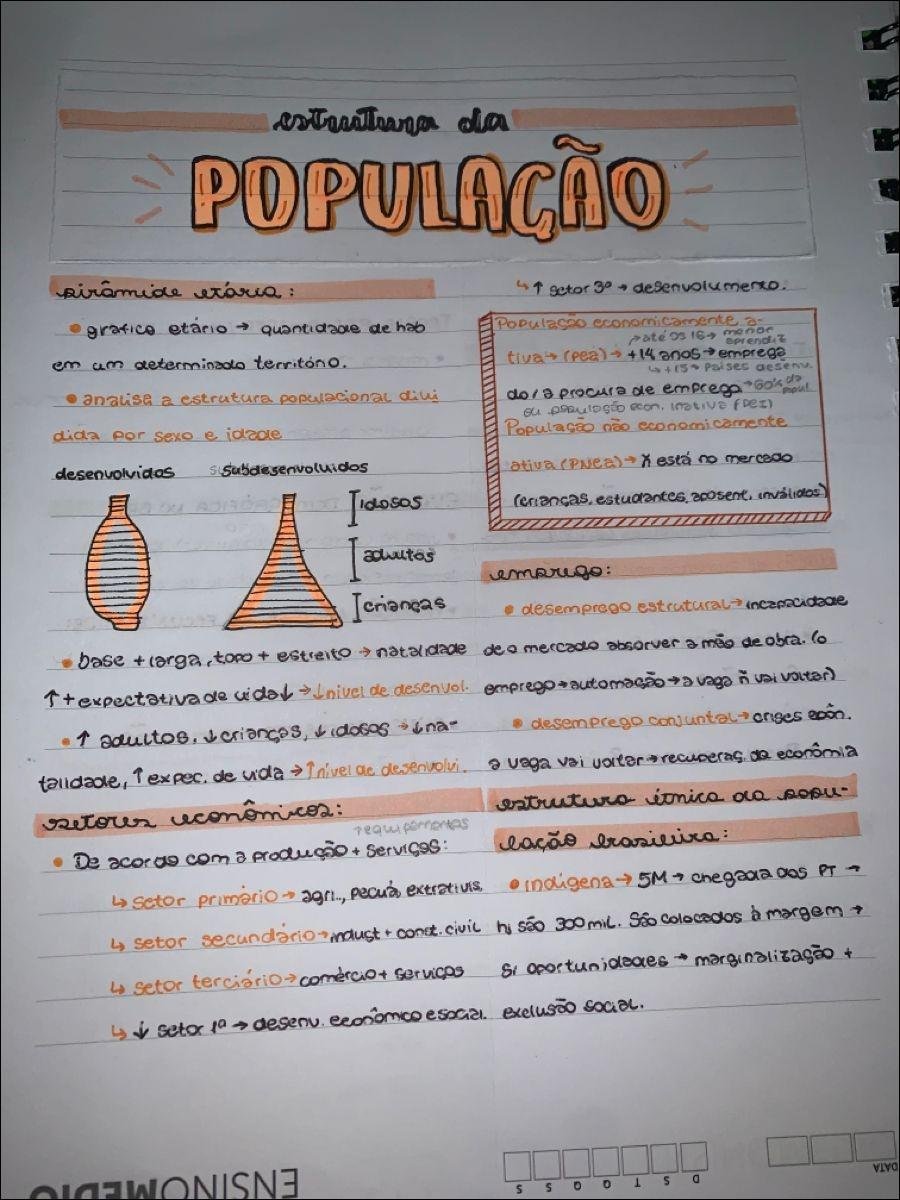 estrutura da
POPULAÇÃO
pirâmide etária:
• gráfico etário → quantidade de hab
em um determinado território.
• analisa a estrutura populacional divi
dida por sexo e idade
desenvolvidos subdesenvolvidos
idosos
adultos
crianças
• base + larga, topo + estreito → natalidade
↑ + expectativa de vida ↓ → ↓ nível de desenvol.
• ↑ adultos, ↓ crianças, ↓ idosos → ↓ na-
talidade, ↑ expec. de vida → ↑ nível de desenvolvi.
setores econômicos:
↑ equipamentos
• De acordo com a produção + serviços:
↳ setor primário → agri., pecuá, extrativis.
↳ setor secundário → indust + const. civil
↳ setor terciário → comércio + serviços
↳ ↓ setor 1º → desenv. econômico e social.
↳ ↑ setor 3º → desenvolvimento.
População economicamente a-
→ até os 16 → menor aprendiz
tiva → (PEA) → +14 anos → emprega
↳ +15 → Países desenv.
do / a procura de emprego → 60% da popul
ou população econ. inativa (PEI)
População não economicamente
ativa (PNEA) → ñ está no mercado
(crianças, estudantes, aposent, inválidos)
emprego:
• desemprego estrutural → incapacidade
de o mercado absorver a mão de obra. (o
emprego → automação → a vaga ñ vai voltar)
• desemprego conjuntal → crises econ.
a vaga vai voltar → recuperaç. da econômia
estrutura étnica da popu-
lação brasileira:
• indígena → 5M → chegada dos PT →
hj são 300 mil. São colocados à margem →
s/ oportunidades → marginalização +
exclusão social.
ENSINOMEDIO
D S T Q Q S S
DATA